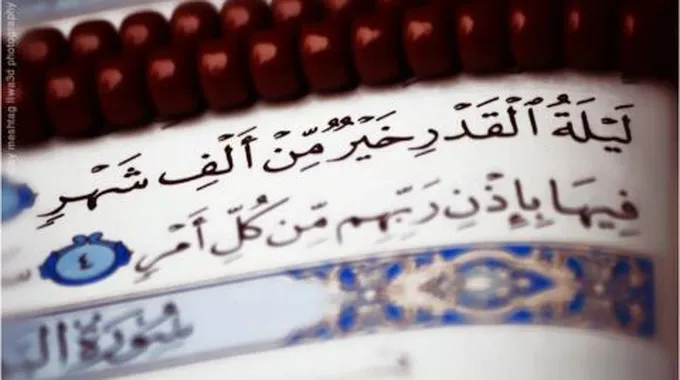 لَيْلَةُ ٱلْقَدْرِ خَيْرٌ مِّنْ أَلْفِ شَهْرٍ
فِيهَا بِإِذْنِ رَبِّهِم مِّن كُلِّ أَمْرٍ ٤
سُورَةُ
meshtag llwa3d photography